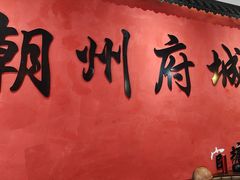 朝州府城